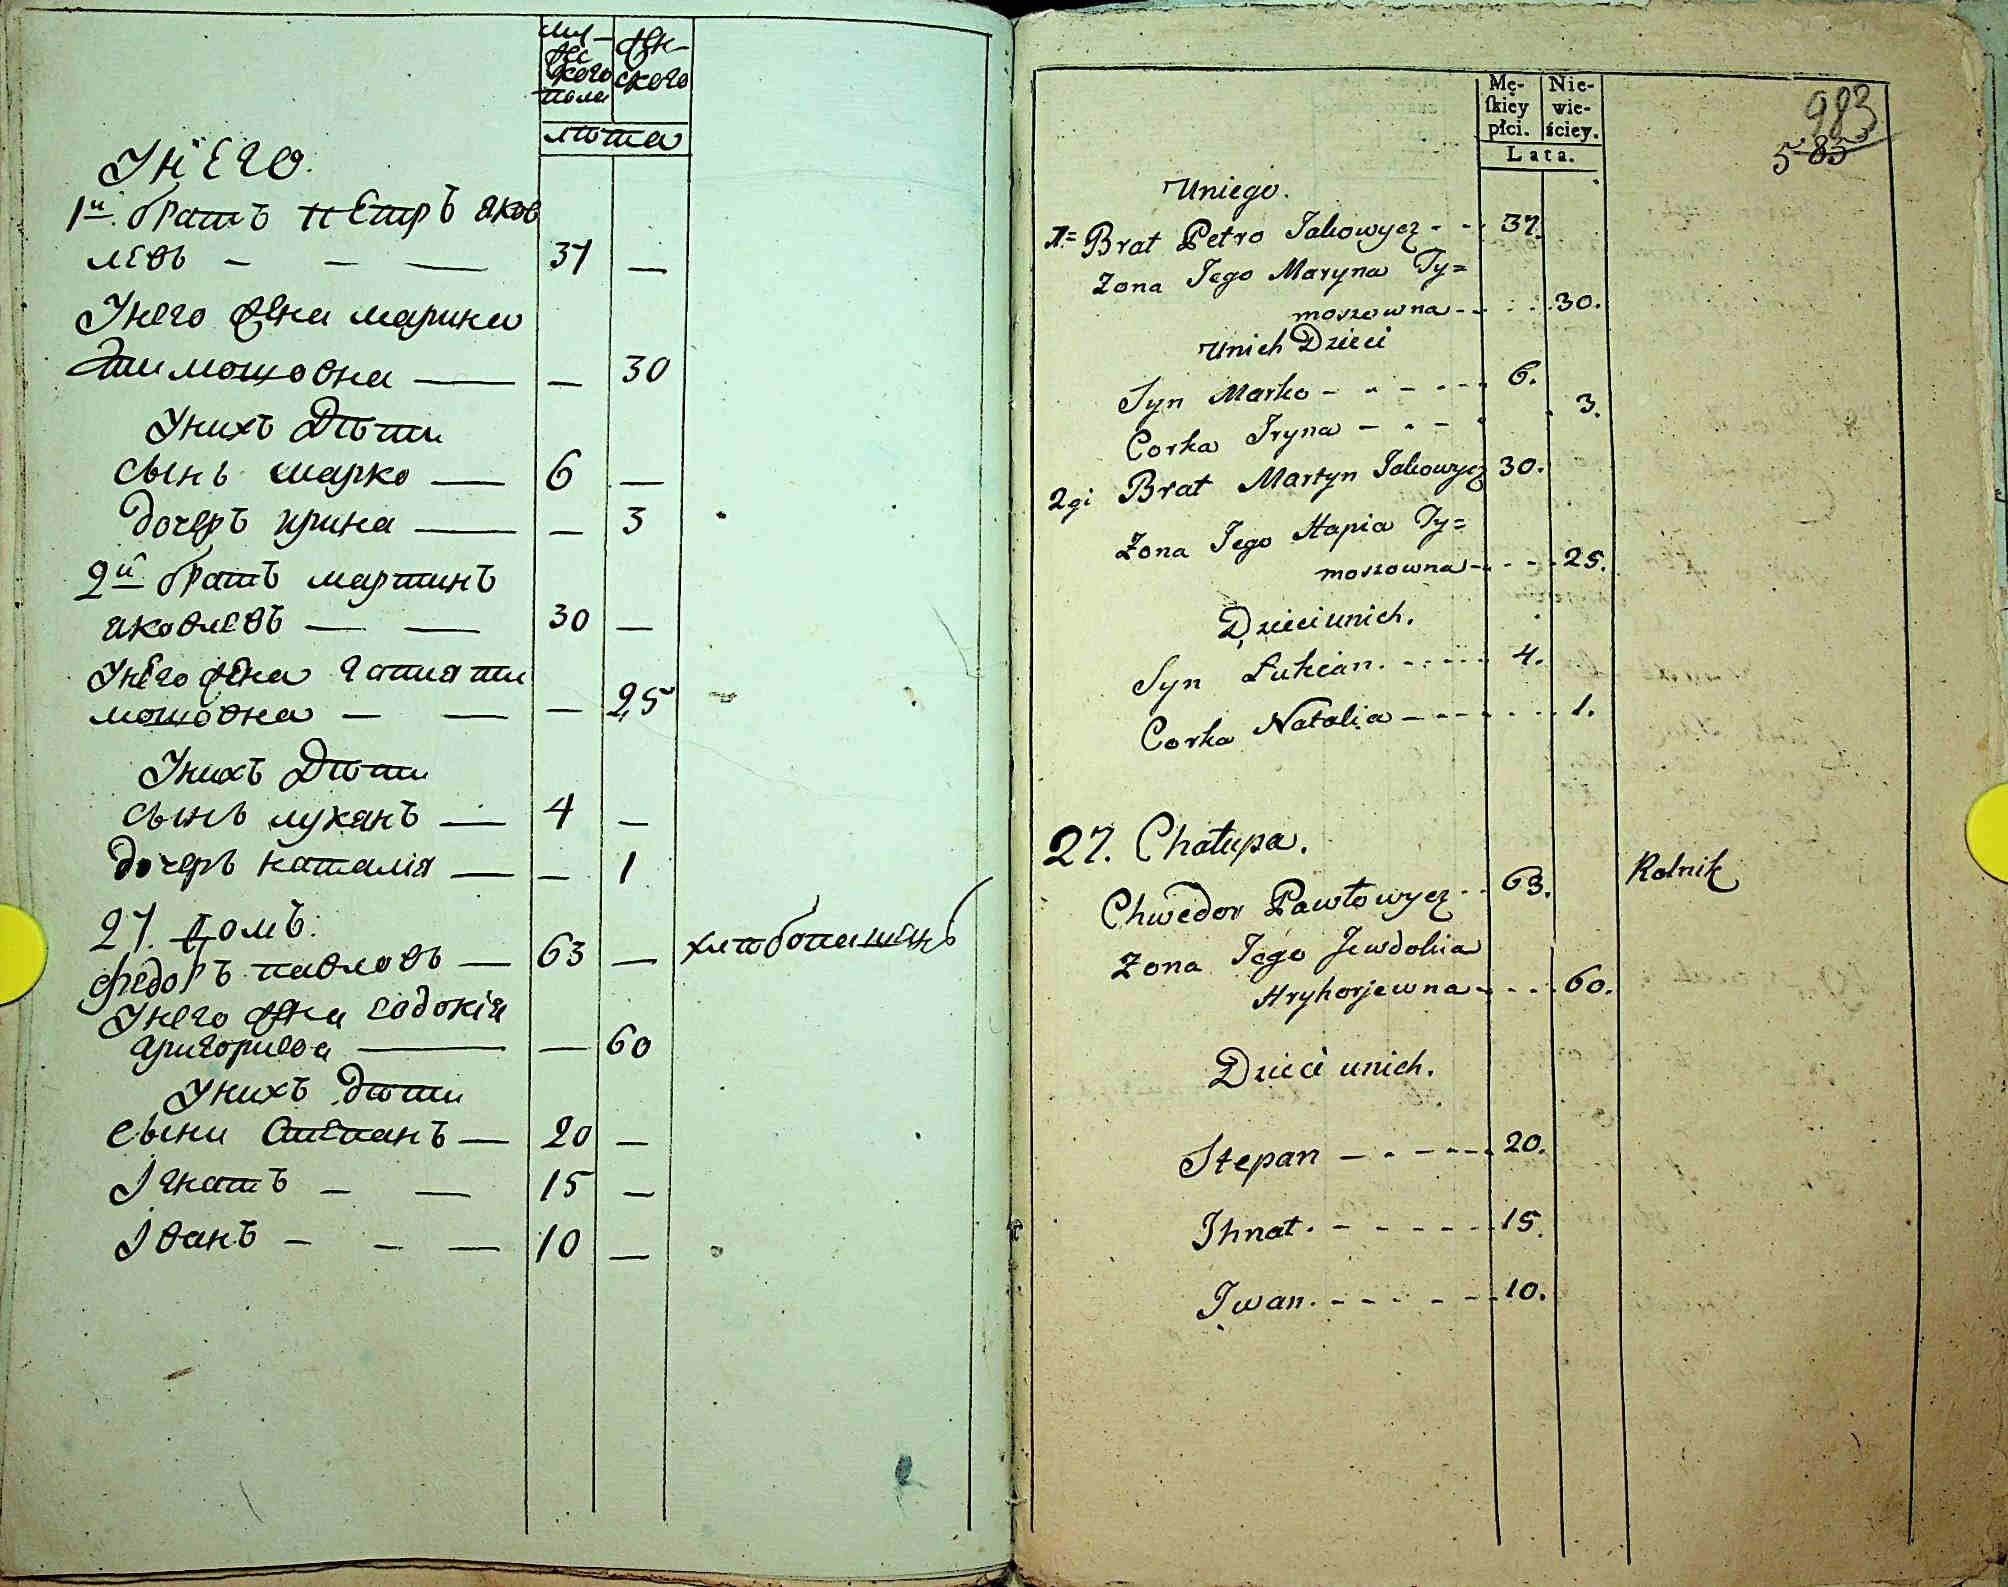 муж-
жес
кого
пола
жен-
ского
лѣта
У него.
1й. братъ петръ яков
левъ — — — 37 —
У него жена марина
тимошовна — — 30
У нихъ Дѣти
сынъ марко — 6 —
дочеръ ирина — — 3
2й. братъ мартинъ
яковлевъ — — 30 —
У него жена гапия ти
мошовна — — — 25
У нихъ Дѣти
сынъ лукянъ — 4 —
дочеръ наталія — — 1
27. домъ.
федоръ павловъ — 63 — хлѣбопашецъ
У него жена евдокія
григориева — — 60
У нихъ дѣти
сыни Степанъ — 20 —
Ігнатъ — — 15 —
Іванъ — — — 10 —
Mę-
ſkiey
płci.
Nie-
wie-
ściey.
Lata.
983
585
Uniego.
1.= Brat Petro Jakowycz - - 37.
Zona Jego Maryna Ty=
moszowna - - - - 30.
Unich Dzieci
Syn Marko - - - - - 6.
Corka Iryna - - - - 3.
2gi Brat Martyn Jakowycz 30.
Zona Jego Hapia Ty=
moszowna - - - - 25.
Dzieci unich.
Syn Lukian. - - - - - 4.
Corka Natalia - - - - - - 1.
27. Chałupa.
Chwedor Pawłowycz - - 63. Rolnik
Zona Jego Jewdokia
Hryhorjewna - - - - 60.
Dzieci unich.
Stepan - - - - - - 20.
Ihnat. - - - - - - 15.
Iwan. - - - - - - 10.